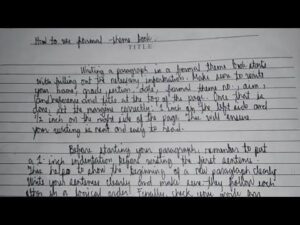 How to use formal theme book.
TITLE
Writing a paragraph in a formal theme book starts
with filling out the necessary information. Make sure to write
your name, grade, section, date, formal theme no., aim,
and reference and title at the top of the page. Once that is
done, set the margins correctly. 1 inch on the left side and
1/2 inch on the right side of the page. This will ensure
your writing is neat and easy to read.
Before starting your paragraph, remember to put
a 1-inch indentation before writing the first sentence.
This helps to show the beginning of a new paragraph clearly.
Write your sentences clearly and make sure they follow each
other in a logical order. Finally, check your work